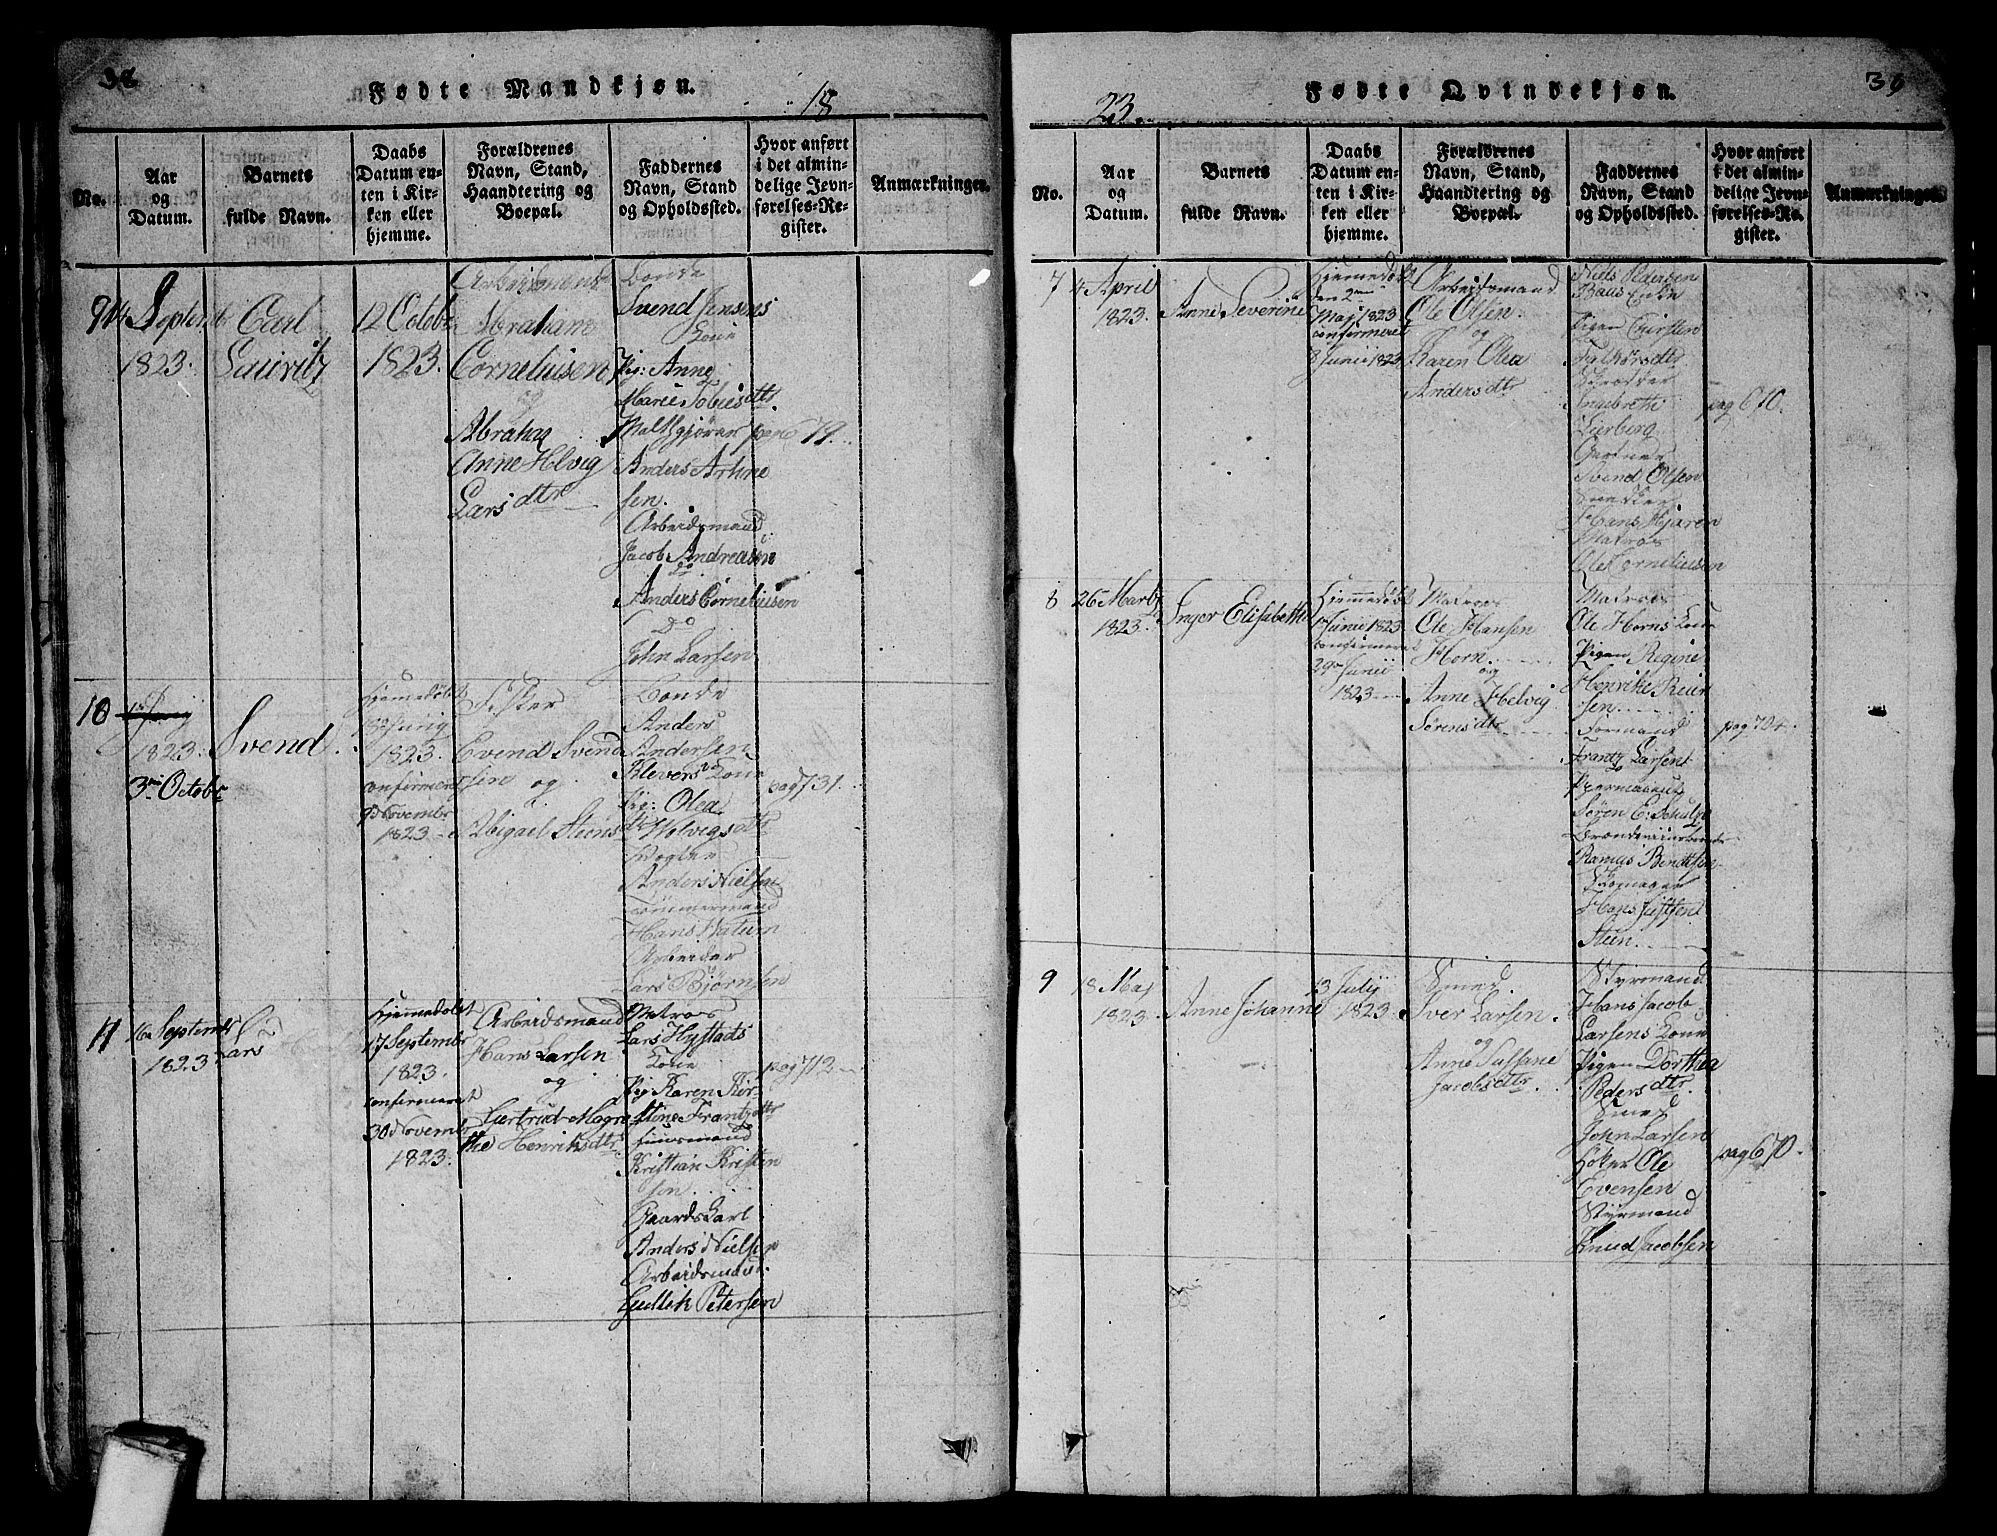 38
Fødte Mandkjøn.
18
No.
Aar
og
Datum.
Barnets
fulde Navn.
Daabs
Datum en-
ten i Kir-
ken eller
hjemme.
Forældrenes
Navn, Stand,
Haandtering og
Boepæl.
Faddernes
Navn, Stand
og Opholdssted.
Hvor anført
i det almin-
delige Jevn-
førelses-Re-
gister.
Anmærkninger.
9
14 Septembr
1823.
Carl
Lauritz
12 Octobr
1823.
Arbeidsmand
Abraham
Corneliusen
og
Abraha
Anne Helvig
Larsdtr
Bonde
Svend Jensens
Kone
Pig: Anne
Marie Tobiesdtr
Maltgjører
Anders Arhne
sen.
Arbeidsmand
Jacob Andreasen
do
Anders Corneliusen
Do
John Larsen
pag 79.
10
1823.
3die Octobr
Svend
Hjemedøbt
1823.
confirmeret
9 Novembr
1823
Fisker
Evend Svend
sen og
Abigael Steens
dtr
Bonde
Anders
Andersen
Klevers Kone
Pig: Olea
Helvigsdtr
Anders Nielsen
Tømmermand
Hans Natum
Arbeider
Lars Bjørnsen
pag 731.
11
16 Septembr
1823
Lars
Hjemmedøbt
17 Septembr
1823.
confirmeret
30 Novembr
1823.
Arbeidsmand
Hans Larsen
og
Gertrud Magre
the Henriksdtr
Matros
Lars Hystads
Kone
Pig Karen Kir
stine Frantzdtr
Huusmand
Kristian Kristen
sen.
Gaardskarl
Anders Nielsen
Arbeidsmand.
Gullik Petersen
pag 712
39
Fødte Qvindekjøn.
23.
No.
Aar
og
Datum.
Barnets
fulde Navn.
Daabs
Datum en-
ten i Kir-
ken eller
hjemme.
Forældrenes
Navn, Stand,
Haandtering og
Boepæl.
Faddernes
Navn, Stand
og Opholdssted.
Hvor anført
i det almin-
delige Jevn-
førelses-Re-
gister.
Anmærkninger.
7
4 April
1823.
Anne Severine
Hjemedøbt
den 2den
Maj 1823
confirmeret
8 Junii 1823
Arbeidsmand
Ole Olsen.
og
Karen Olea
Andersdtr
Niels Pedersen
Enke
Pigen Kirsten
Ingebreth
Lierberg
Gartner
Svend Olsen
Snedker
Hans Kjæren
Matros
Ole Corneliusen
pag 670.
8
26 Martz
1823.
Inger Elisabethe
Hjemmedøbt
1 Junii 1823
confirmeret
29 Junii
1823
Matros
Ole Hansen
Horn.
og
Anne Helvig
Sørensdtr
Matros
Ole Horns Kone
Pigen Regine
Henrike Reier
sen
Formand
Frantz Larsen
Søren E: Schulze
Brændeviinsbrender
Rasmus Bendtsen
Skomager
Hans Justsen
Steen.
pag 704.
9
18 Maj
1823.
Anne Johanne
13 Julij
1823
Smed.
Iver Larsen.
og
Anne Sussane
Jacobsdtr.
Styrmand
Hans Jacob
Larsens Kone
Pigen Dorthea
Pedersdtr.
Smed
John Larsen
Høker Ole
Evensen
Styrmand
Knud Jacobsen
pag 670.